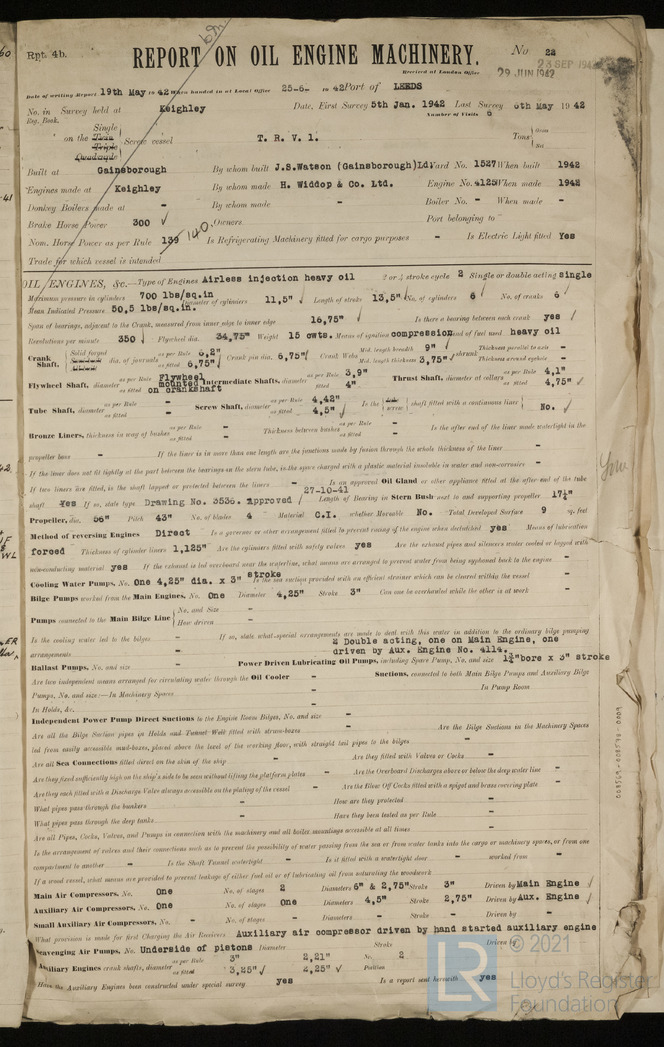 Rpt. 4b.
REPORT ON OIL ENGINE MACHINERY.
No 22
23 SEP 1942
Received at London Office 29 JUN 1942
Date of writing Report 19th May 1942 When handed in at Local Office 25-6- 1942 Port of LEEDS
No. in Survey held at Keighley Date, First Survey 5th Jan. 1942 Last Survey 6th May 1942
Reg. Book. Number of Visits 6
on the Single Twin Triple Quadruple Screw vessel T. R. V. 1. Tons Gross Net
Built at Gainsborough By whom built J.S.Watson (Gainsborough)Ld. Yard No. 1527 When built 1942
Engines made at Keighley By whom made H. Widdop & Co. Ltd. Engine No. 4125 When made 1942
Donkey Boilers made at - By whom made - Boiler No. - When made -
Brake Horse Power 300 ✓ Owners Port belonging to
Nom. Horse Power as per Rule 139 140 Is Refrigerating Machinery fitted for cargo purposes - Is Electric Light fitted Yes
Trade for which vessel is intended
OIL ENGINES, &c.—Type of Engines Airless injection heavy oil 2 or 4 stroke cycle 2 Single or double acting single
Maximum pressure in cylinders 700 lbs/sq.in Diameter of cylinders 11,5" ✓ Length of stroke 13,5" ✓ No. of cylinders 6 ✓ No. of cranks 6 ✓
Mean Indicated Pressure 50,5 lbs/sq.in.
Span of bearings, adjacent to the Crank, measured from inner edge to inner edge 16,75" ✓ Is there a bearing between each crank yes ✓
Revolutions per minute 350 ✓ Flywheel dia. 34,75" Weight 15 cwts. Means of ignition compression Kind of fuel used heavy oil
Crank Shaft, Solid forged dia. of journals as per Rule 6,2" as fitted 6,75" ✓ Crank pin dia. 6,75" ✓ Crank Webs Mid. length breadth 9" ✓ Mid. length thickness 3,75" ✓ shrunk Thickness parallel to axis - Thickness around eyehole -
Flywheel Shaft, diameter as per Rule as fitted Flywheel mounted on crankshaft Intermediate Shafts, diameter as per Rule 3,9" fitted 4" Thrust Shaft, diameter at collars as per Rule 4,1" as fitted 4,75" ✓
Tube Shaft, diameter as per Rule - as fitted - Screw Shaft, diameter as per Rule 4,42" as fitted 4,5" ✓ Is the tube screw shaft fitted with a continuous liner No. ✓
Bronze Liners, thickness in way of bushes as per Rule - as fitted - Thickness between bushes as per Rule - as fitted - Is the after end of the liner made watertight in the
propeller boss - If the liner is in more than one length are the junctions made by fusion through the whole thickness of the liner -
If the liner does not fit tightly at the part between the bearings in the stern tube, is the space charged with a plastic material insoluble in water and non-corrosive -
If two liners are fitted, is the shaft lapped or protected between the liners - Is an approved Oil Gland or other appliance fitted at the after end of the tube
shaft Yes If so, state type Drawing No. 3536. Approved 27-10-41 Length of Bearing in Stern Bush next to and supporting propeller 17¼"
Propeller, dia. 56" Pitch 43" No. of blades 4 Material C.I. whether Moveable No. Total Developed Surface 9 sq. feet
Method of reversing Engines Direct Is a governor or other arrangement fitted to prevent racing of the engine when declutched yes Means of lubrication
forced Thickness of cylinder liners 1,125" Are the cylinders fitted with safety valves yes Are the exhaust pipes and silencers water cooled or lagged with
non-conducting material yes If the exhaust is led overboard near the waterline, what means are arranged to prevent water from being syphoned back to the engine -
Cooling Water Pumps, No. One 4,25" dia. x 3" stroke Is the sea suction provided with an efficient strainer which can be cleared within the vessel -
Bilge Pumps worked from the Main Engines, No. One Diameter 4,25" Stroke 3" Can one be overhauled while the other is at work -
Pumps connected to the Main Bilge Line No. and Size - How driven -
Is the cooling water led to the bilges - If so, state what special arrangements are made to deal with this water in addition to the ordinary bilge pumping
arrangements - 2 Double acting, one on Main Engine, one
driven by Aux. Engine No. 4114.
Ballast Pumps, No. and size - Power Driven Lubricating Oil Pumps, including Spare Pump, No. and size 1¾"bore x 3" stroke
Are two independent means arranged for circulating water through the Oil Cooler - Suctions, connected to both Main Bilge Pumps and Auxiliary Bilge
Pumps, No. and size:—In Machinery Spaces - In Pump Room -
In Holds, &c. -
Independent Power Pump Direct Suctions to the Engine Room Bilges, No. and size -
Are all the Bilge Suction pipes in Holds and Tunnel Well fitted with strum-boxes - Are the Bilge Suctions in the Machinery Spaces
led from easily accessible mud-boxes, placed above the level of the working floor, with straight tail pipes to the bilges -
Are all Sea Connections fitted direct on the skin of the ship - Are they fitted with Valves or Cocks -
Are they fixed sufficiently high on the ship's side to be seen without lifting the platform plates - Are the Overboard Discharges above or below the deep water line -
Are they each fitted with a Discharge Valve always accessible on the plating of the vessel - Are the Blow Off Cocks fitted with a spigot and brass covering plate -
What pipes pass through the bunkers - How are they protected -
What pipes pass through the deep tanks - Have they been tested as per Rule -
Are all Pipes, Cocks, Valves, and Pumps in connection with the machinery and all boiler mountings accessible at all times -
Is the arrangement of valves and their connections such as to prevent the possibility of water passing from the sea or from water tanks into the cargo or machinery spaces, or from one
compartment to another - Is the Shaft Tunnel watertight - Is it fitted with a watertight door - worked from -
If a wood vessel, what means are provided to prevent leakage of either fuel oil or of lubricating oil from saturating the woodwork
Main Air Compressors, No. One No. of stages 2 Diameters 6" & 2,75" Stroke 3" Driven by Main Engine ✓
Auxiliary Air Compressors, No. One No. of stages One Diameters 4,5" Stroke 2,75" Driven by Aux. Engine ✓
Small Auxiliary Air Compressors, No. - No. of stages - Diameters - Stroke - Driven by -
What provision is made for first Charging the Air Receivers Auxiliary air compressor driven by hand started auxiliary engine
Scavenging Air Pumps, No. Underside of pistons Diameter Stroke Driven by -
Auxiliary Engines crank shafts, diameter as per Rule 3" 2,21" No. 2
as fitted 3,25" ✓ 2,25" ✓ Position
Have the Auxiliary Engines been constructed under special survey yes Is a report sent herewith yes
008569-008578-0009
LR
© 2021
Lloyd's Register
Foundation